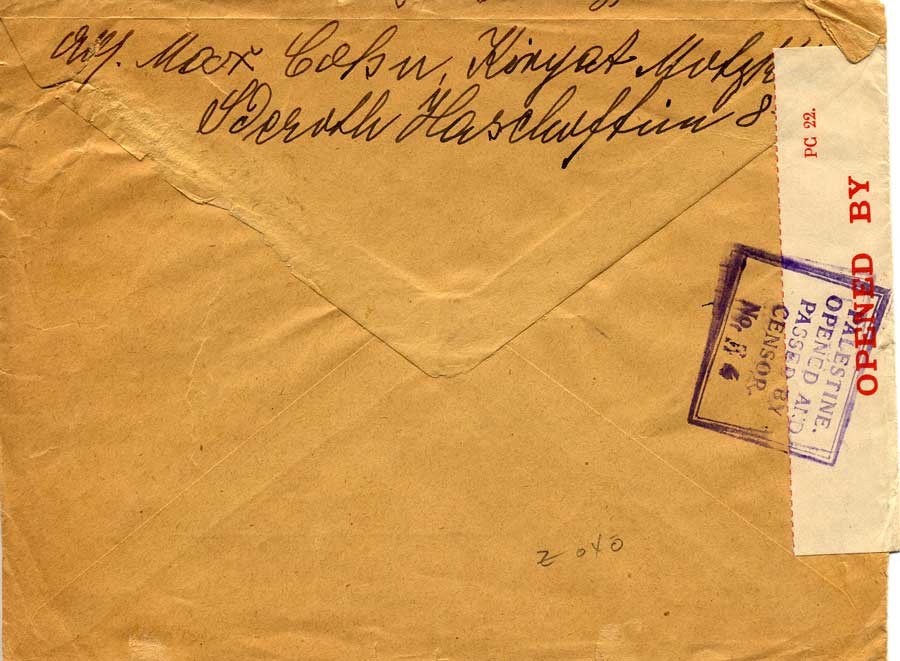 Max Cohn, Kiryat Motzk
Sderoth Haschoftim 8
PC 22.
OPENED BY
PALESTINE.
OPENED AND
PASSED BY
CENSOR.
No. H 4
Z 040